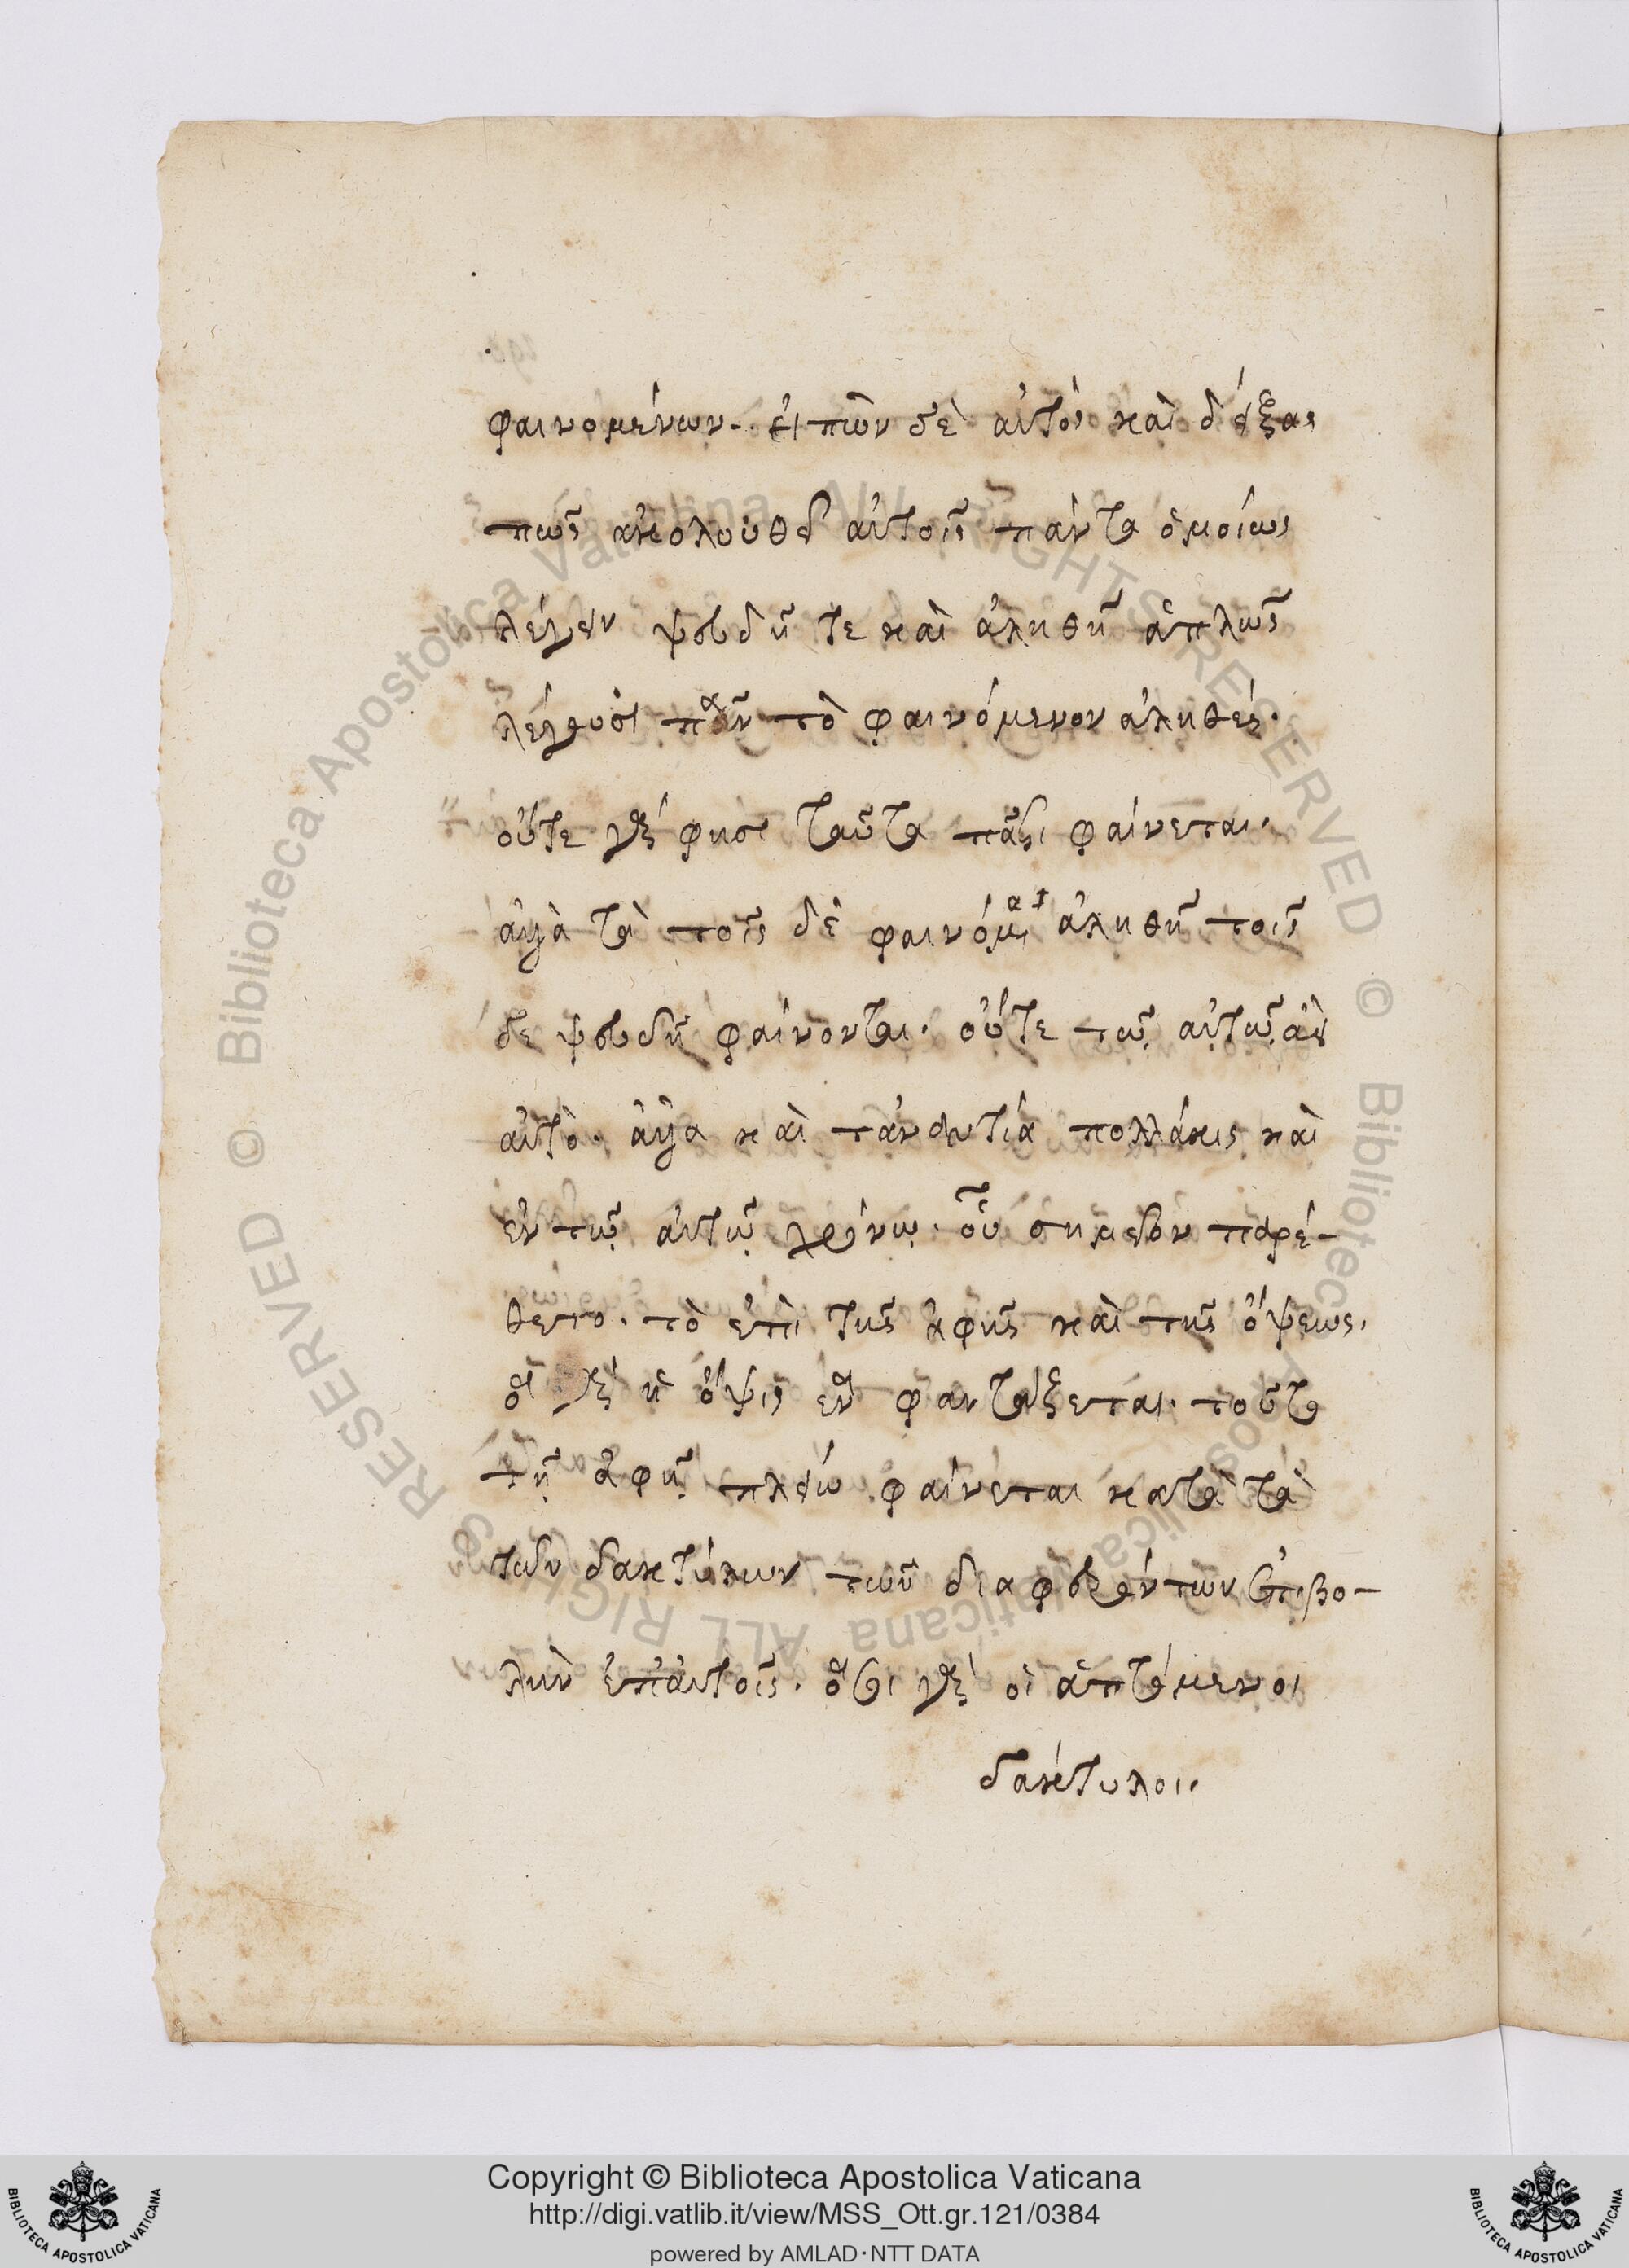 φαινομένων. εἰπὼν δὲ αὐτὸς καὶ δείξας
πῶς ἀκολουθεῖ αὐτοῖς πάντα ὁμοίως
λέγειν ψευδῆ τε καὶ ἀληθῆ ἁπλῶς
λέγουσι πᾶν τὸ φαινόμενον ἀληθές.
οὔτε γάρ φησι ταῦτα πᾶσι φαίνεται.
ἀλλὰ τὰ τοῖς δὲ φαινόμενα ἀληθῆ τοῖς
δε ψευδῆ φαίνονται. οὔτε τῷ αὐτῷ ἀεὶ
αὐτὸ. ἀλλὰ καὶ τἀναντία πολλάκις καὶ
ἐν τῷ αὐτῷ χρόνῳ. οὗ σημεῖον παρέ-
θετο. τὸ ἐπὶ τῆς ἁφῆς καὶ τῆς ὄψεως.
οὗ γὰρ ἡ ὄψις ἓν φαντάζεται. τοῦτο
τῇ ἁφῇ πλείω φαίνεται κατὰ τὰ
τῶν δακτύλων τῶν διαφερόντων ἐπιβο-
λὴν ἐπ' αὐτοῖς. ὅσοι γὰρ οἱ ἁπτόμενοι
δάκτυλοι.
Copyright © Biblioteca Apostolica Vaticana
http://digi.vatlib.it/view/MSS_Ott.gr.121/0384
powered by AMLAD·NTT DATA
BIBLIOTECA APOSTOLICA VATICANA
BIBLIOTECA APOSTOLICA VATICANA